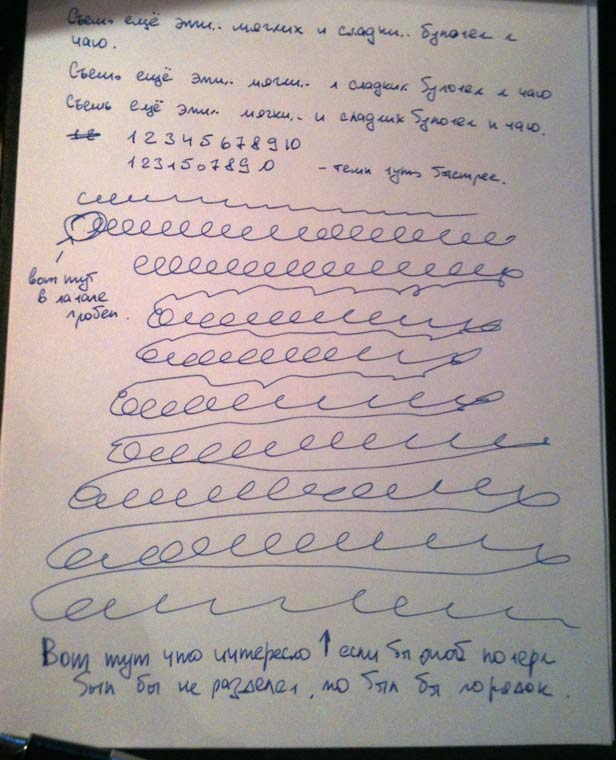 Съешь ещё эти.. мягких и сладки.. булочек и
чаю.
Съешь ещё эти.. мягки.. и сладких булочек и чаю
Съешь ещё эти.. мягки.. и сладких булочек и чаю.
1 2 3 4 5 6 7 8 9 10
1 2 3 1 5 0 7 8 9 0 - темп чуть быстрее.
вот тут
в начале
пробел.
Вот тут что интересно ↑ если бы этой
был бы не разделен, то был бы порядок.